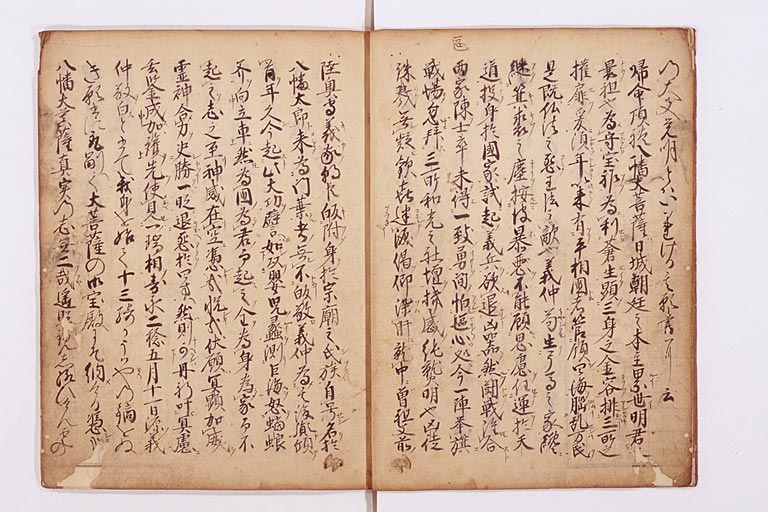 帰命頂礼八幡大菩薩日域朝廷之本主累世明君
曩祖也為守宝祚為利蒼生顕三身之金容排三所之
権扉爰頃年以来有平相國者管領四海悩乱万民
是既仏法之怨王法之敵也義仲苟生弓馬之家纔
継箕裘之塵按彼暴悪不能顧思慮任運於天
道投身於國家試起義兵欲退凶器然闘戦雖合
両家陣士卒未得一致勇間怕區心処今一陣挙旗
戦場忽拝三所和光之社壇機感純熟明也凶徒
誅戮無疑歓喜迷涙渇仰染肝就中曽祖父前
陸奥守義家朝臣皈附身於宗廟之氏族自号名於
八幡太郎来為門葉者無不皈敬義仲為其後胤傾
首年久今起此大功譬如以嬰児蠡測巨海怒蟷螂
斧向立車然為國為君而起之全為身為家而不
起之志之至神感在空憑哉悦哉伏願冥顕加威
霊神合力决勝一時退怨於四方然則丹祈叶冥慮
可成加護先使見一瑞相寿永二稔五月十一日源義
仲敬白とかきて我身を始て十三騎かうはやの鏑をぬ
き願書に取副て大菩薩の御宝殿にそ納ける憑か
八幡大菩薩真実の心志無二哉遥照覧し給けん雲の